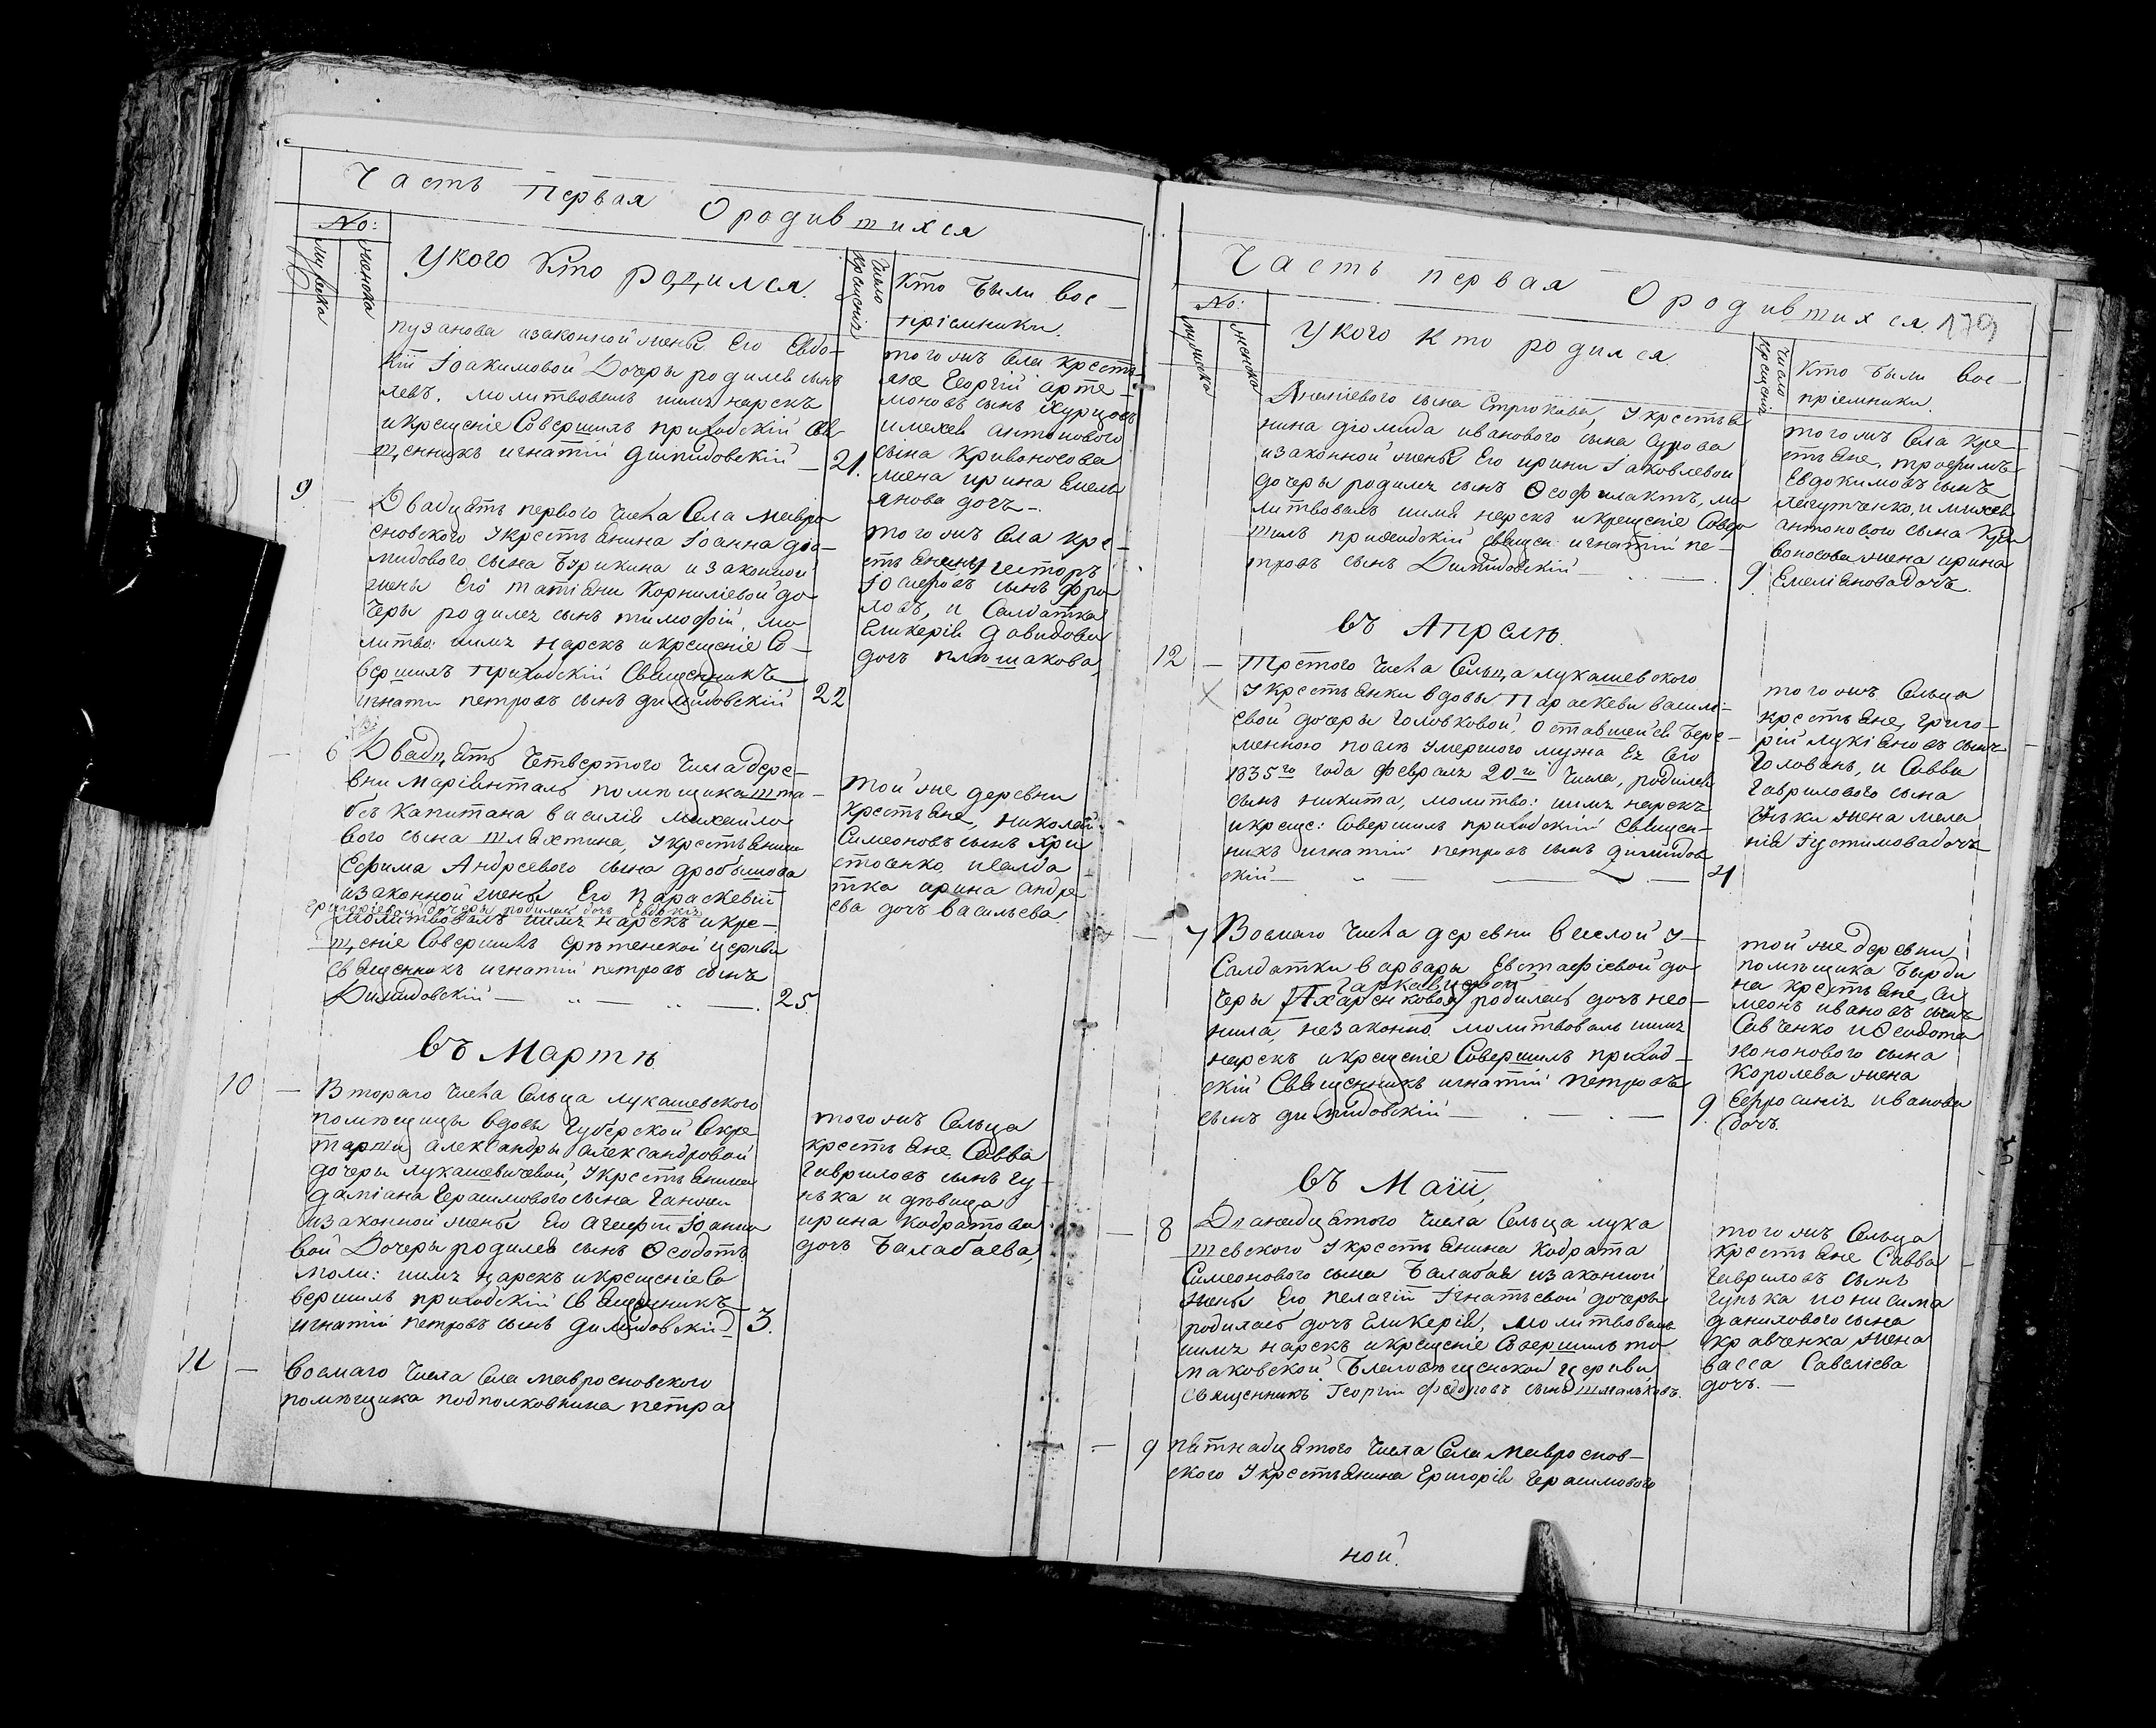 Часть Первая О родившихся
No:
мужеска
женска
У кого кто родился.
Число крещенія
Кто были вос-
пріемники.
пузанова изаконной жены Его Евдо-
кіи Іоакимовой Дочеры родился сынъ
левъ. молитвовалъ имя нарекъ
икрещеніе Совершилъ приходскій Свя
щенникъ игнатій
21.
тогожъ Села крестья
не Георгій арте-
моновъ сынъ
имихея антонового
сына Кривоносова
жена ирина Емель
янова доч.-
9 -
Двадцять первого Числа Села мавро
сновского Укрестьянина Іоанна діо-
мидового сына Бурикина изаконной
жены Его татіяни Корниліевой до
черы родился сынъ тимофій, мо
литво: имя нарекъ икрещеніе Со-
вершилъ Приходскій Священникъ
игнати петровъ сынъ
22
тогожъ Села кре-
стьяне несторъ
Іосифовъ сынъ фро
ловъ, и Салдатка
Гликерія давидова
дочь плешакова,
- 6
Двадцять Четвертого Числа дере-
вни Маріенталь помещика шта-
бсъ Капитана василія михайло
вого сына шляхтина, Укрестьянина
Ефима Андреевого сына дробышова
изаконной жены Его Параскевіи
григоріевой дочеры родилась дочь Евдокія
молитвовалъ имя нарекъ икре-
щеніе Совершилъ Сретенской церкви
священникъ игнатій петровъ сынъ
25.
тойже деревни
крестьяне, николай
Симеоновъ сынъ Хри
стоенко, исалда
тка ирина андре
ева доч васильева.
въ Марте
10 -
Втораго Числа Сельца лукашевского
помещицы вдовы Губерской Секре
тарши александры александровой
дочеры лукашевичевой, Укрестьянина
даміана Герасимового сына
изаконной жены Его агафіи Іоанно
вой Дочеры родился сынъ Ѳеодотъ
моли: имя нарекъ икрещеніе Со
вершилъ приходскій священникъ
игнатій петровъ сынъ
3.
тогожъ Сельца
крестьяне Савва
Гавриловъ сынъ Гу
нька и девица
ирина Кодратова
доч Балабаева,
11 -
Восмаго Числа Села мавросновского
помещика подполковника петра
Часть первая О родившихся. 179
No:
мужеска
женска
У кого кто родился
Число крещенія
Кто были вос-
пріемники.
Ананіевого сына Стрюкова, Укрестья
нина діомида иванового сына Сурова
изаконной жены Его ирини Іаковлевой
дочеры родился сынъ Ѳеофилактъ, мо
литвовалъ имя нарекъ икрещеніе Совер
шилъ приходскій священ: игнатій пе-
тровъ сынъ
9.
тогожъ Села кре
стьяне, трофимъ
Евдокимовъ сынъ
имихея
антонового сына Кри
воносова жена ирина
Емеліянова доч.
въ Апреле.
12 -
Третого Числа Сельца лукашевского
Укрестьянки вдовы Параскеви василі-
евой дочеры Головковой, оставшейся бере-
менною после умершого мужа Ея Сего
1835го года февраля 20го Числа, родился
сынъ никита, молитво: имя нарекъ
икреще: Совершилъ приходскій священ-
никъ игнатій петровъ сынъ
скій
4
тогожъ Сельца
крестьяне, григо-
рій лукіяновъ сынъ
Головань, и Саввы
Гаврилового сына
Гуньки жена мела
нія Іустимова доч
- 7
Восмаго Числа деревни веселой У-
Салдатки варвары Евстафіевой до
черы Захаренковой родилась доч нео-
нила, незаконно молитвовалъ имя
нарекъ икрещеніе Совершилъ приход-
скій Священникъ игнатій петровъ
сынъ
9.
тойже деревни
помещика
на крестьяне, Си
меонъ ивановъ сынъ
Савченко и Ѳеодота
Кононового сына
Королева жена
Ефросинія иванова
доч.
въ Маіи,
- 8
Дванадцятого Числа Сельца лука
шевского Укрестьянина Кодрата
Симеонового сына Балабая изаконной
жены Его пелагіи Игнатьевой дочеры
родилась доч Гликерія, молитвовалъ
имя нарекъ икрещеніе Совершилъ то
маковской Благовещенской церкви
Священникъ Георгій Федоровъ сынъ
тогожъ Сельца
крестьяне Савва
Гавриловъ сынъ
Гунька ионисима
данилового сына
кравченка жена
васса Савеліева
доч. -
- 9
пятнадцятого Числа Села мавроснов-
ского Укрестьянина григорія Герасимового
ной.